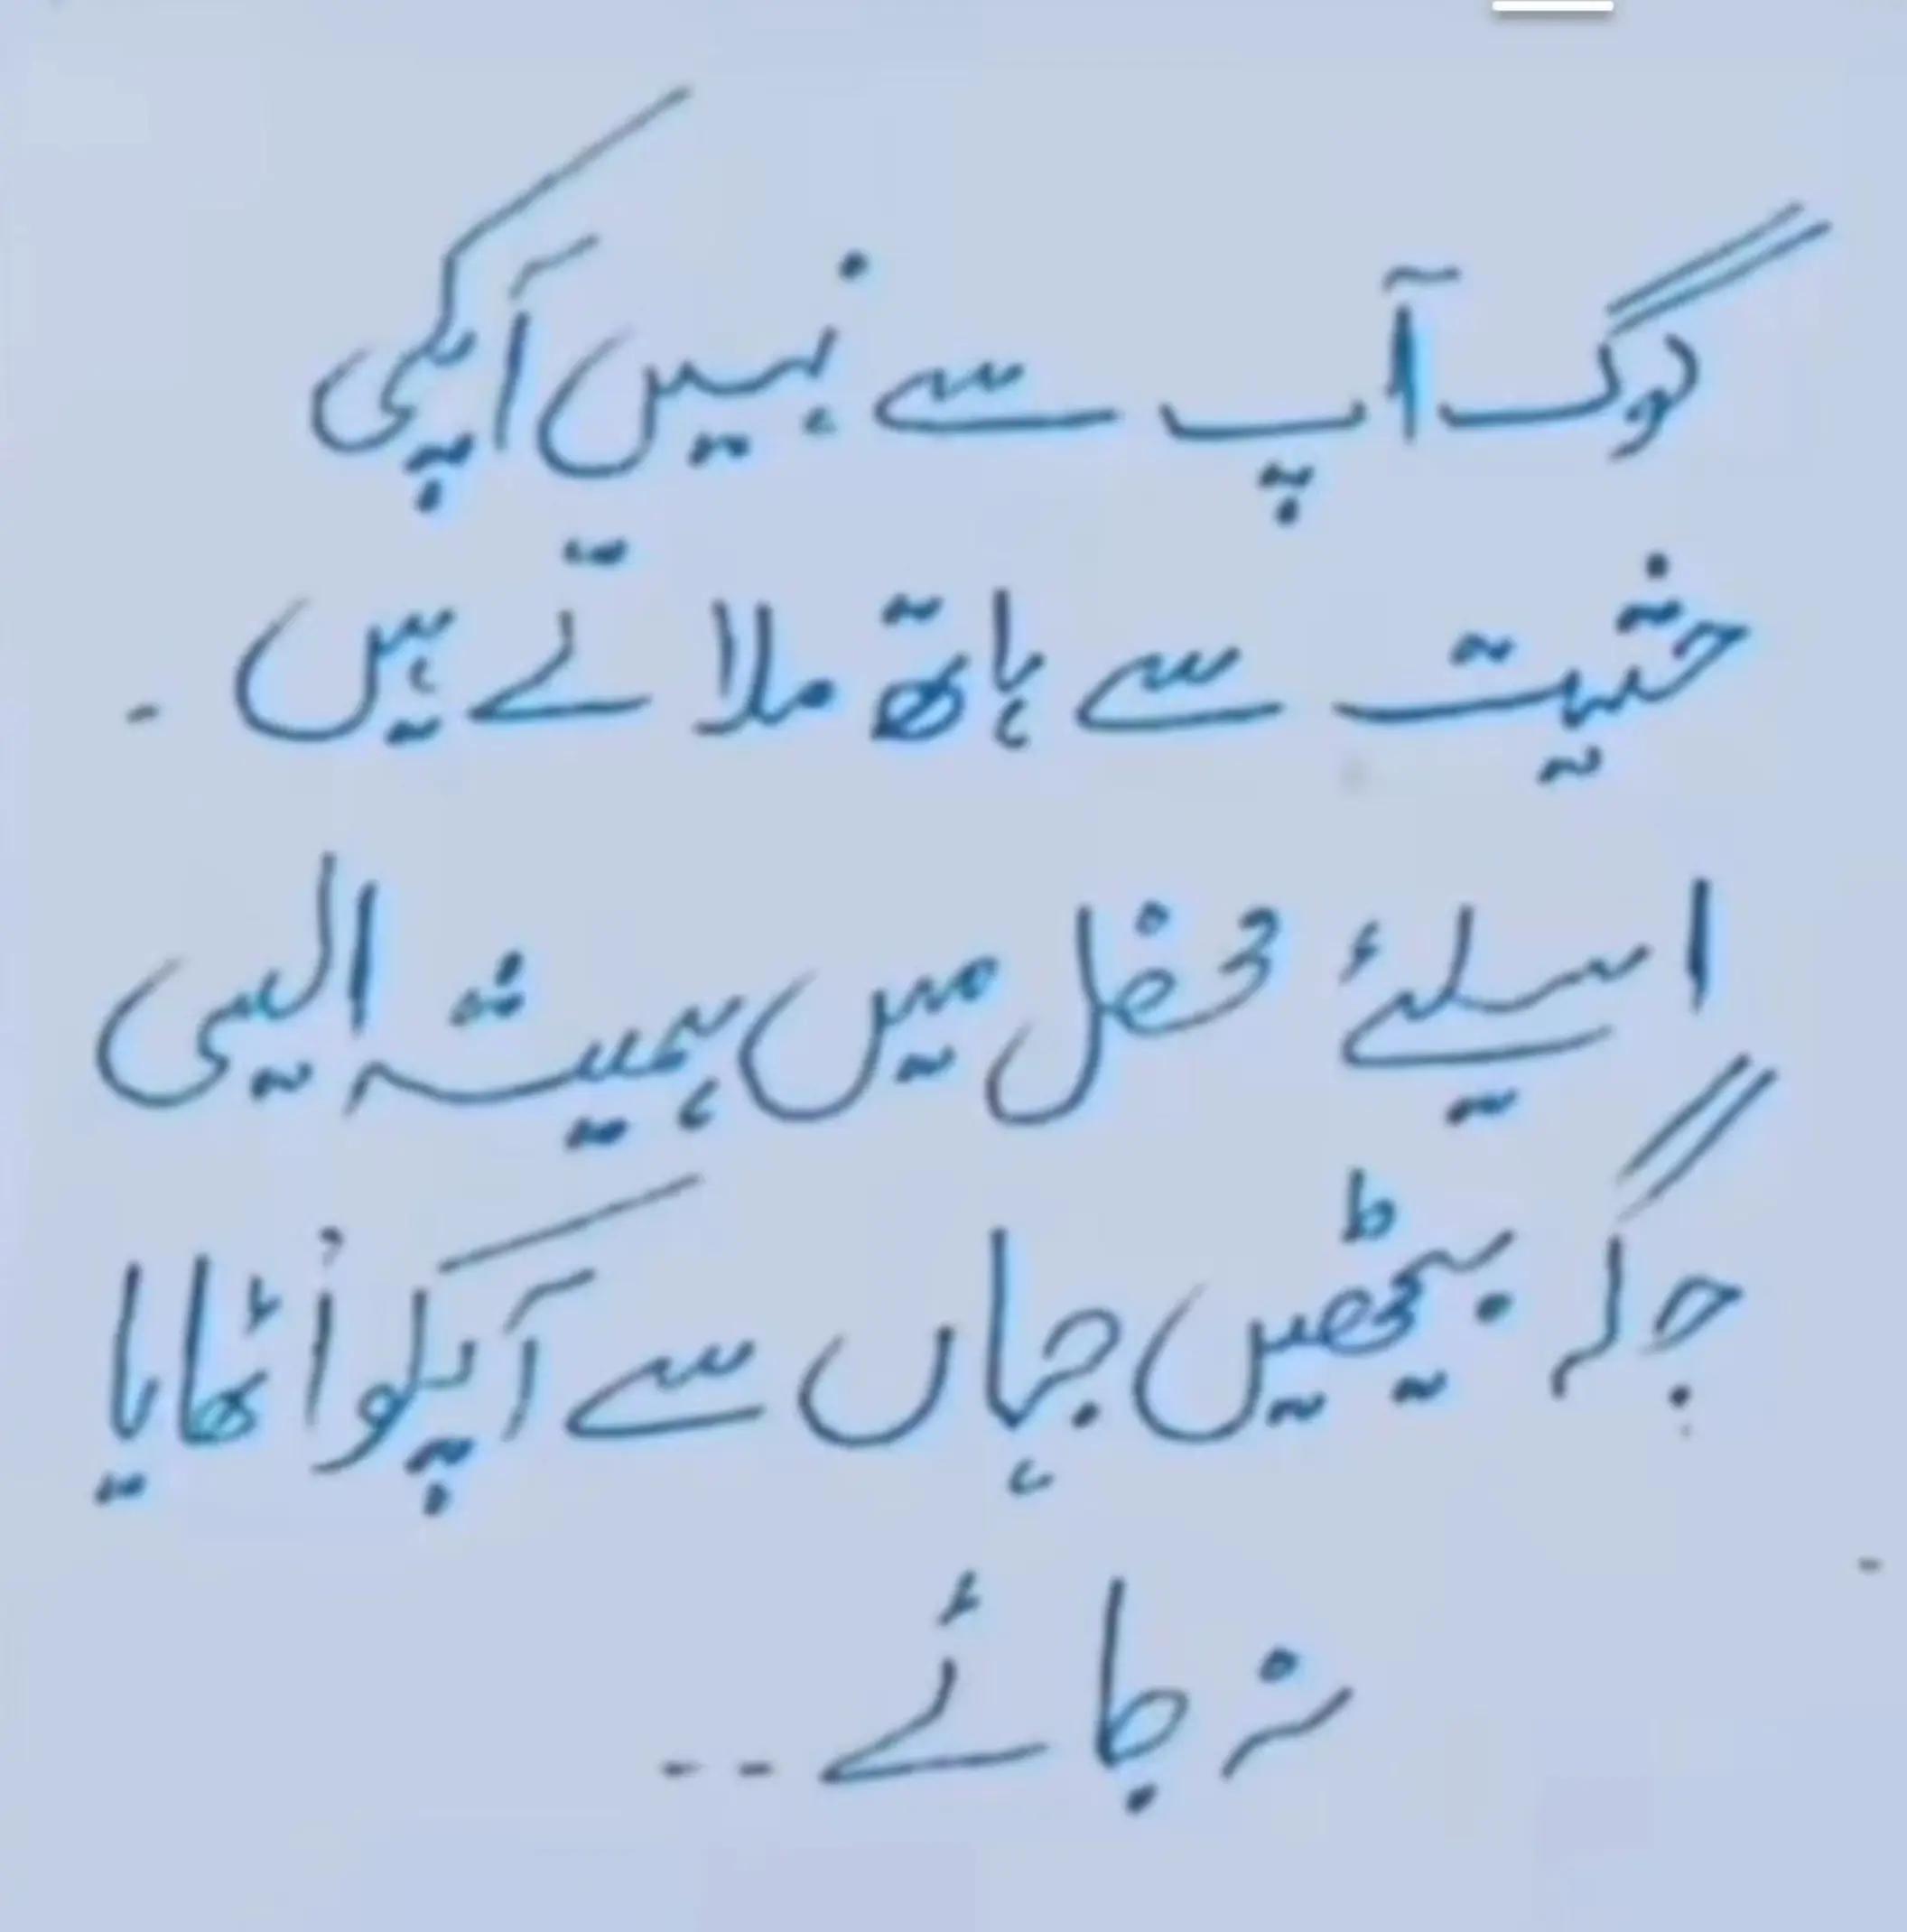 لوگ آپ سے نہیں آپکی
حثیت سے ہاتھ ملاتے ہیں ۔
اسیلئے محفل میں ہمیشہ ایسی
جگہ بیٹھیں جہاں سے آپکو اُٹھایا
نہ جائے ۔۔